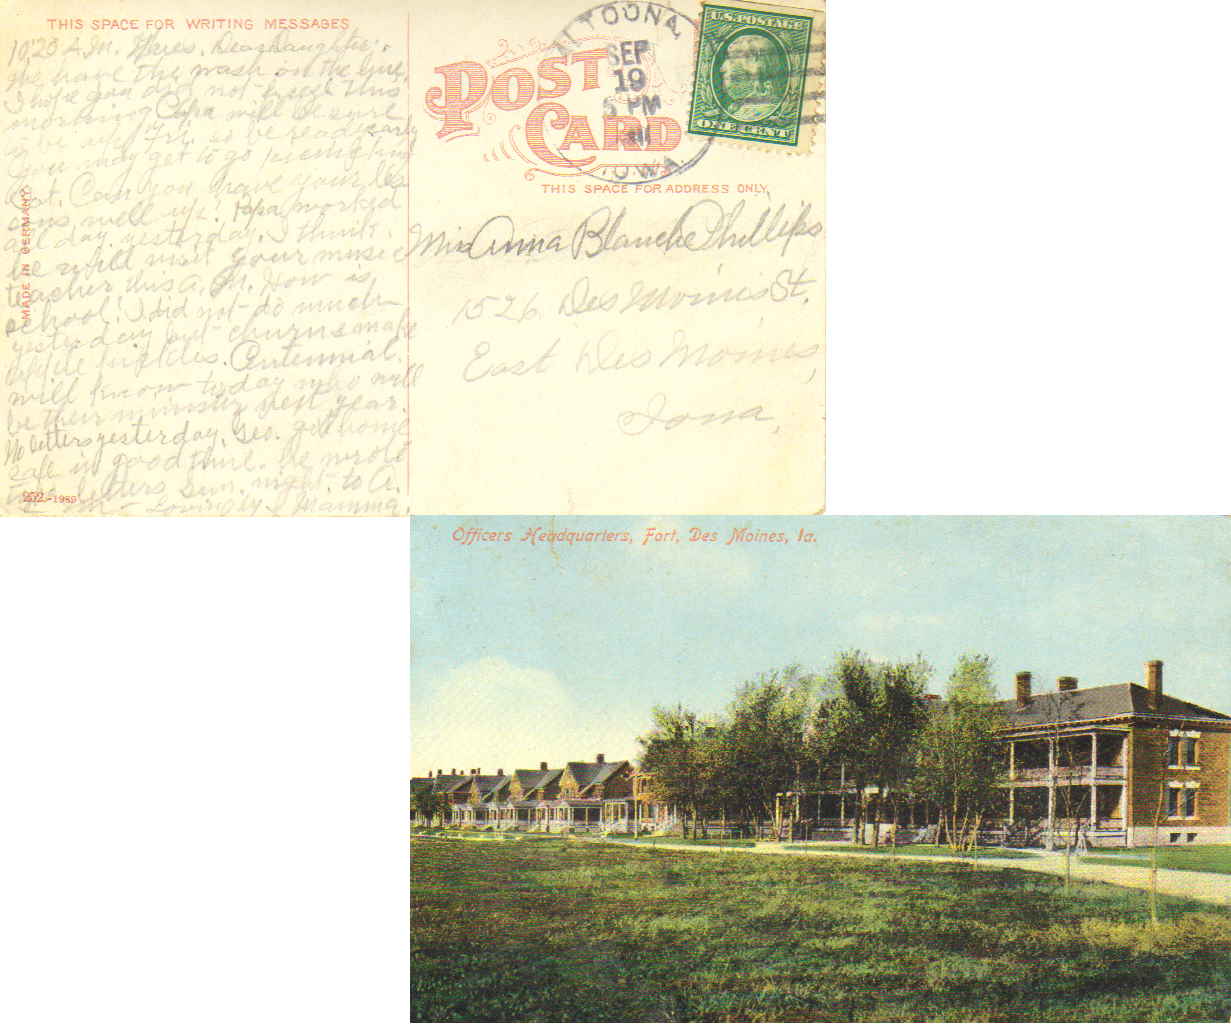 THIS SPACE FOR WRITING MESSAGES
10,20 A.M. Dear Daughter;
We have the wash on the line,
I hope you did not freeze this
morning Papa will be sure
to be in Fri. so be ready early
You may get to go
Can you have your les
sons well up? Papa worked
all day yesterday, I think
he will visit your music
teacher this A.M. How is
school? I did not do much
yesterday but churn & make
pickles. Centennial
will know today who will
be their minister next year.
No letters yesterday, Geo. got home
safe in good time. He wrote
two letters Sun. night to A.
Lovingly, Mamma.
MADE IN GERMANY
252.-1989
POST
CARD
THIS SPACE FOR ADDRESS ONLY.
ALTOONA,
SEP
19
5 PM
IOWA.
U.S. POSTAGE
ONE CENT
Miss Anna Blanche Phillips
1526 Des Moines St.
East Des Moines,
Iowa,
Officers Headquarters, Fort, Des Moines, Ia.